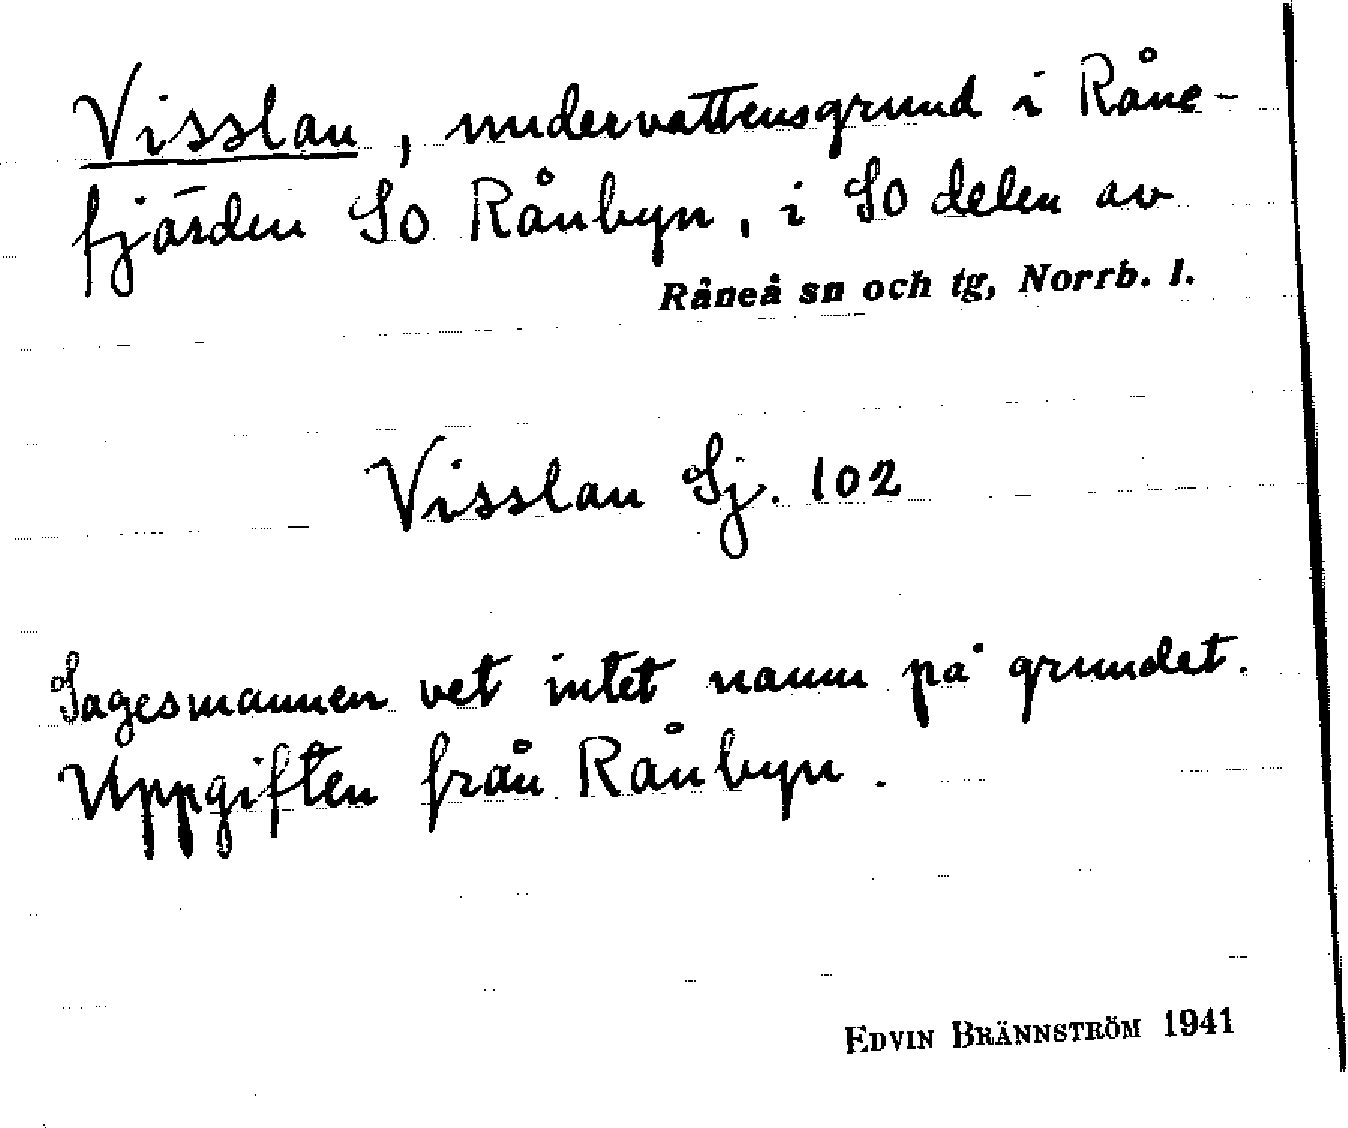 Visslan, undervattensgrund i Råne-
fjärden SO Rånbyn, i SO delen av
Råneå sn och tg, Norrb. l.
Visslan Sj. 102
Sagesmannen vet intet namn på grundet.
Uppgiften från Rånbyn.
EDVIN BRÄNNSTRÖM 1941